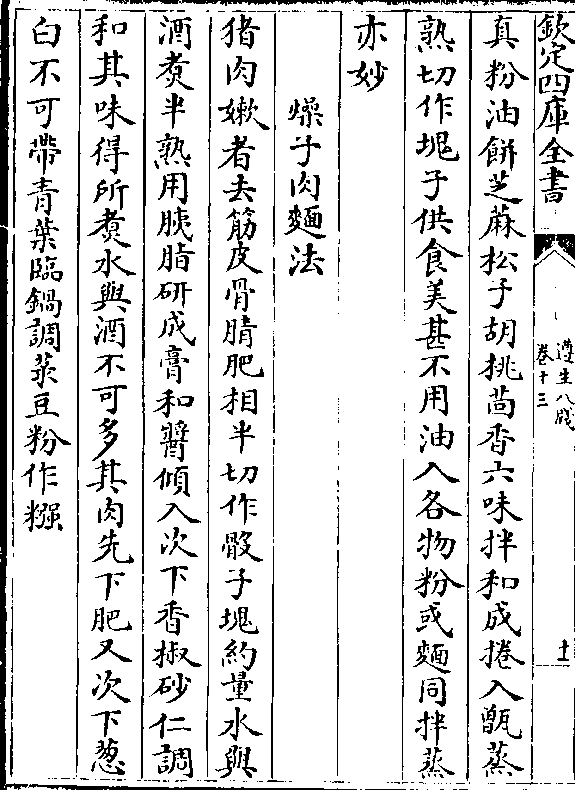 欽定四庫全書
遵生八牋
卷十三
十一
真粉油餅芝蔴松子胡桃茴香六味拌和成捲入甑蒸
熟切作塊子供食美甚不用油入各物粉或麵同拌蒸
亦妙
燥子肉麵法
猪肉嫩者去筋皮骨腈肥相半切作骰子塊約量水與
酒煑半熟用胰脂研成膏和醬傾入次下香椒砂仁調
和其味得所煑水與酒不可多其肉先下肥又次下葱
白不可帶青葉臨鍋調菉豆粉作糨